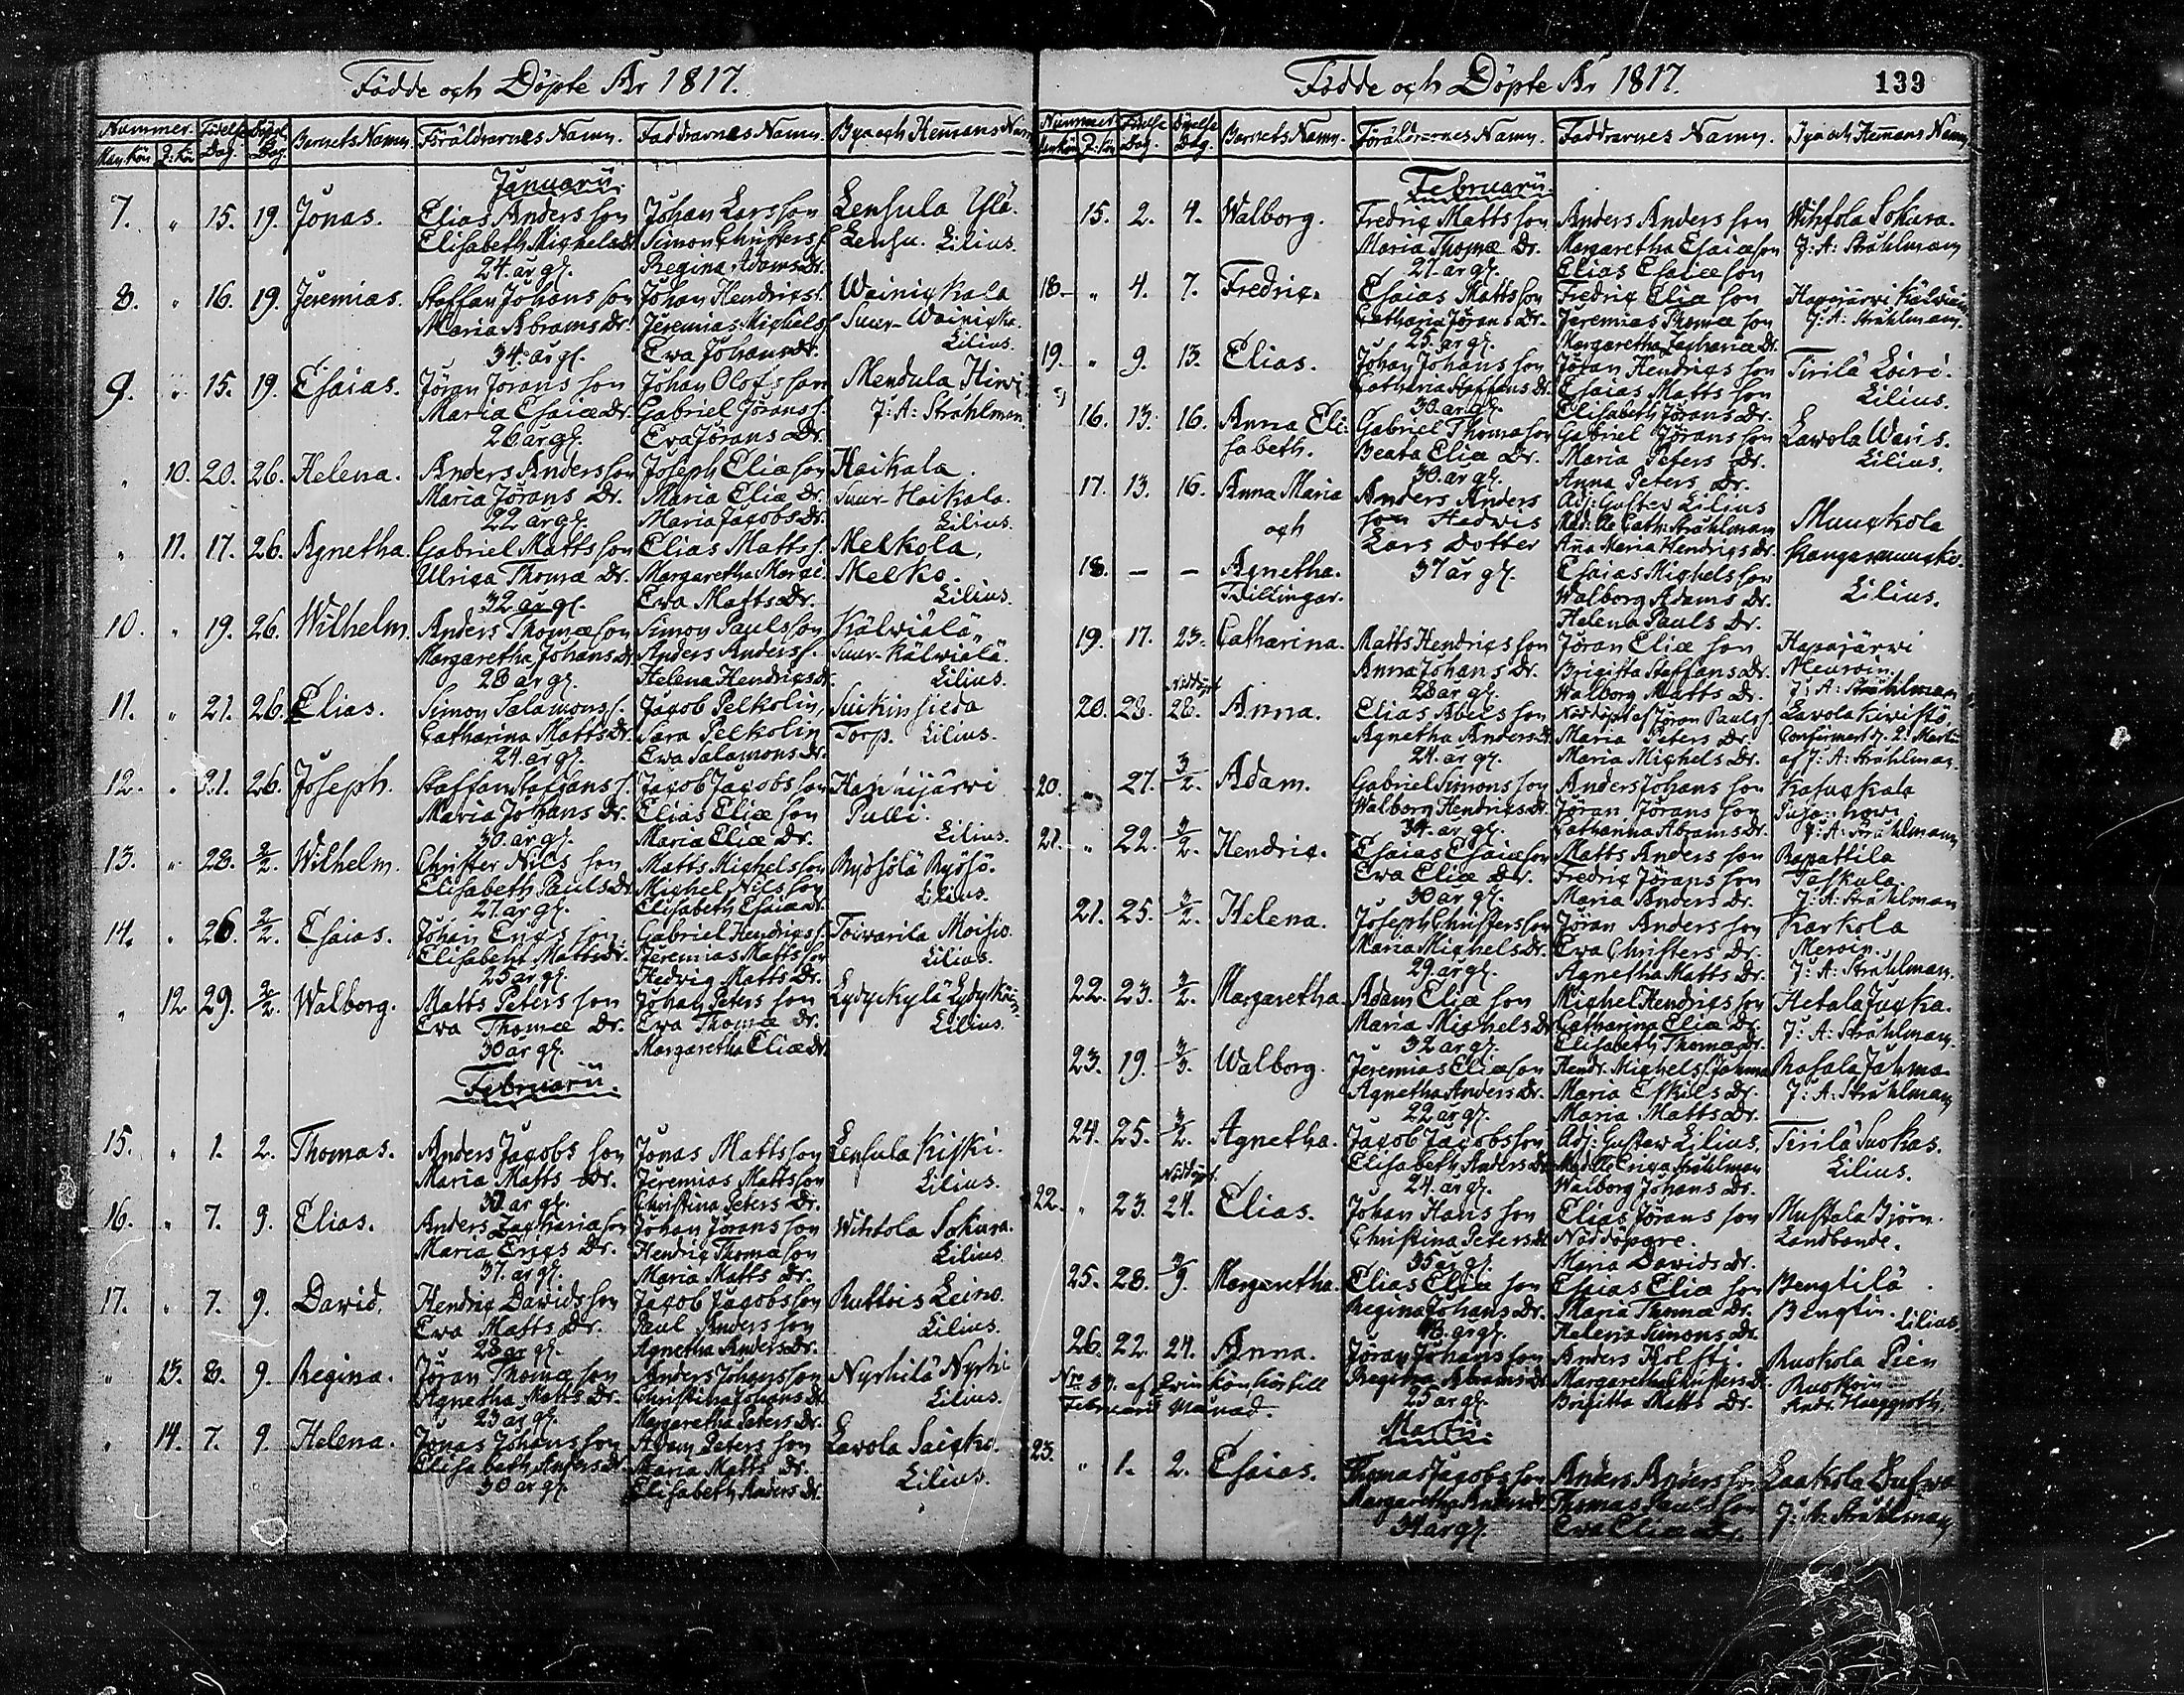 Födde och Döpte År 1817.
Nummer. Födelse Dag. Döpelse Dag. Barnets Namn. Föräldrarnes Namn. Faddrarnes Namn. By och Hemans Namn
Man kön Q: kön
Januarii.
7. " 15. 19. Jonas. Elias Anders son Johan Larsson Lensula Ylä.
Elisabeth Michels Dr. Simon Christers s. Lensu. Lilius.
24. år gl. Regina Adams Dr.
8. " 16. 19. Jeremias. Staffan Johans son Johan Hendrics s. Wainickala
Maria Abrams Dr. Jeremias Michels s. Suur-Wainicka.
34. år gl. Ewa Johans Dr. Lilius.
9. " 15. 19. Esaias. Jöran Jörans son Johan Olofs son Mendula Hirvi
Maria Esaiæ Dr. Gabriel Jörans s. J: A: Stråhlman.
26 år gl. Eva Jörans Dr.
" 10. 20. 26. Helena. Anders Anders son Joseph Eliæ son Haikala.
Maria Jörans Dr. Maria Eliæ Dr. Suur-Haikala.
22 år gl. Maria Jacobs Dr. Lilius.
" 11. 17. 26. Agnetha. Gabriel Matts son Elias Matts s. Melkola,
Ulrica Thomæ Dr. Margaretha Melko.
32 år gl. Ewa Matts Dr. Lilius.
10. " 19. 26. Wilhelm. Anders Thomæ son Simon Pauls son Kälwiälä
Margaretha Johans Dr. Anders Anders s. Suur-Kälwiälä.
28 år gl. Helena Hendrics Dr. Lilius.
11. " 21. 26. Elias. Simon Salamons s. Jacob Pelkolin,
Catharina Matts Dr. Sara Pelkolin Torp. Lilius.
24. år gl. Ewa Salamons Dr.
12. " 21. 26. Joseph. Staffan Staffans s. Jacob Jacobs son
Maria Johans Dr. Elias Eliæ son Pulli.
30. år gl. Maria Eliæ Dr. Lilius.
13. " 28. 2/2. Wilhelm. Christer Nils son Matts Michels son
Elisabeth Pauls Dr. Michel Nils son Lilius.
27. år gl. Elisabeth Esaiæ Dr.
14. " 26. 2/2. Esaias. Johan Erics son Gabriel Hendrics s. Toivarila Moisio.
Elisabeht Matts Dr. Jeremias Matts son Lilius.
25 år gl. Hedvig Matts Dr.
" 12. 29. 2/2. Walborg. Matts Peters son Johan Peters son Lydyckylä
Ewa Thomæ Dr. Ewa Thomæ Dr. Lilius.
30 år gl. Margaretha Eliæ Dr.
Februarii.
15. " 1. 2. Thomas. Anders Jacobs son Jonas Matts son Lensula Kiski.
Maria Matts Dr. Jeremias Matts son Lilius.
30 år gl. Christina Peters Dr.
16. " 7. 9. Elias. Anders Zachariæ son Johan Jörans son Wihtola Sokura.
Maria Erics Dr. Hendric Thomæ son Lilius.
37. år gl. Maria Matts Dr.
17. " 7. 9. David. Hendric Davids son Jacob Jacobs son Ruttois Leino.
Ewa Matts Dr. Paul Anders son Lilius.
28 år gl. Agnetha Anders Dr.
" 13. 8. 9. Regina. Jöran Thomæ son Anders Johans son Nyrhilä Nyrhi
Agnetha Matts Dr. Christina Johans Dr. Lilius.
23 år gl. Margaretha Peters Dr.
" 14. 7. 9. Helena. Jonas Johans son Adam Peters son Lavola Saicko.
Elisabeth Anders Dr. Maria Matts Dr. Lilius.
30 år gl. Elisabeth Anders Dr.
Födde och Döpte År 1817. 139
Nummer. Födelse Dag. Döpelse Dag. Barnets Namn. Föräldrarnes Namn. Faddrarnes Namn. By och Hemans Namn
Man kön Q: kön
Februarii.
15. 2. 4. Walborg. Fredric Matts son Anders Anders son Wihtola Sokura.
Maria Thomæ Dr. Margaretha Esaiæ son J: A: Stråhlman
21. år gl. Elias Esaiæ son
18. " 4. 7. Fredric. Esaias Matts son Fredric Eliæ son Hapajärvi Kälviäin
Catharina Jörans Dr. Jeremias Thomæ son J: A: Stråhlman.
25. år gl. Margaretha Zachariæ Dr.
19. " 9. 13. Elias. Johan Johans son Jöran Hendrics son Tirilä Loiri.
Catharina Staffans Dr. Esaias Matts son Lilius.
30. år gl. Elisabeth Jörans Dr.
16. 13. 16. Anna Eli- Gabriel Thomæ son Gabriel Jörans son Lavola Waris.
sabeth. Beata Eliæ Dr. Maria Peters Dr. Lilius.
30. år gl. Anna Peters Dr.
17. 13. 16. Anna Maria Anders Anders Adj: Gustav Lilius
och son Hedvis Mad:lle Cath: Stråhlman Muuckola
Lars Dotter Anna Maria Hendrics Dr. Kangasmuucko.
18. — — Agnetha. 37 år gl. Esaias Michels son
Tvillingar. Walborg Adams Dr. Lilius.
Helena Pauls Dr.
19. 17. 23. Catharina. Matts Hendrics son Jöran Eliæ son Hapajärvi
Anna Johans Dr. Brigitta Staffans Dr. Meuroin
28 år gl. Walborg Matts Dr. J: A: Stråhlman
Nöddöpt
20. 28. 28. Anna. Elias Abels son Nöddöpt af Jöran Pauls s. Lavola Kivistö,
Agnetha Anders Dr. Maria Peters Dr. Confirmert d. 2. Martii
24. år gl. Maria Michels Dr. af J: A: Stråhlman.
20. " 27. 3/2. Adam. Gabriel Simons son Anders Johans son
Walborg Hendrics Dr. Jöran Jörans son
34. år gl. Catharina Abrams Dr. J: A: Stråhlman
21. " 22. 3/2. Hendric. Esaias Esaiæ son Matts Anders son Rapattila
Ewa Eliæ Dr. Fredric Jörans son Taskula
30 år gl. Maria Anders Dr. J: A: Stråhlman
21. 25. 3/2. Helena. Joseph Christers son Jöran Anders son Karkola
Maria Michels Dr. Ewa Christers Dr. Meroin.
29. år gl. Agnetha Matts Dr. J: A: Stråhlman.
22. 23. 3/2. Margaretha Adam Eliæ son Michel Hendrics son Hetala Jucka.
Maria Michels Dr. Catharina Eliæ Dr. J: A: Stråhlman.
32 år gl. Elisabeth Thomæ Dr.
23. 19. 3/3. Walborg. Jeremias Eliæ son Hendr. Michels s. Jahma Rasala Jahma.
Agnetha Anders Dr. Maria Eskils Dr. J: A: Stråhlman
22 år gl. Maria Matts Dr.
24. 25. 3/2. Agnetha. Jacob Jacobs son Adj: Gustaw Lilius, Tirilä Suokas.
Elisabeth Anders Dr. Mad:lle Erica Stråhlman Lilius.
24. år gl. Walborg Johans Dr.
Nöddöpt.
22. " 23. 24. Elias. Johan Hans son Elias Jörans son Mustala Björn.
Christina Peters Dr. Nöddöpare. Landbonde.
35 år gl. Maria Davids Dr.
25. 28. 3/9. Margaretha. Elias Eliæ son Esaias Eliæ son Bengtilä
Regina Johans Dr. Maria Thomæ Dr. Bengtin. Lilius.
43. år gl. Helena Simons Dr.
26. 22. 24. Anna. Jöran Johans son Anders Holsti. Ruokola Pien
Regina Abrams Dr. Margaretha Anders Dr. Ruokoin
25 år gl. Brigitta Matts Dr. Andr. Haeggroth.
N:ro af Qvin kön hör till
Februarii Månad.
Martii.
23. " 1. 2. Esaias. Thomas Jacobs son Anders Anders son
Margaretha Anders Dr. Thomas Pauls son J: A: Stråhlman
34 år gl. Ewa Eliæ Dr.